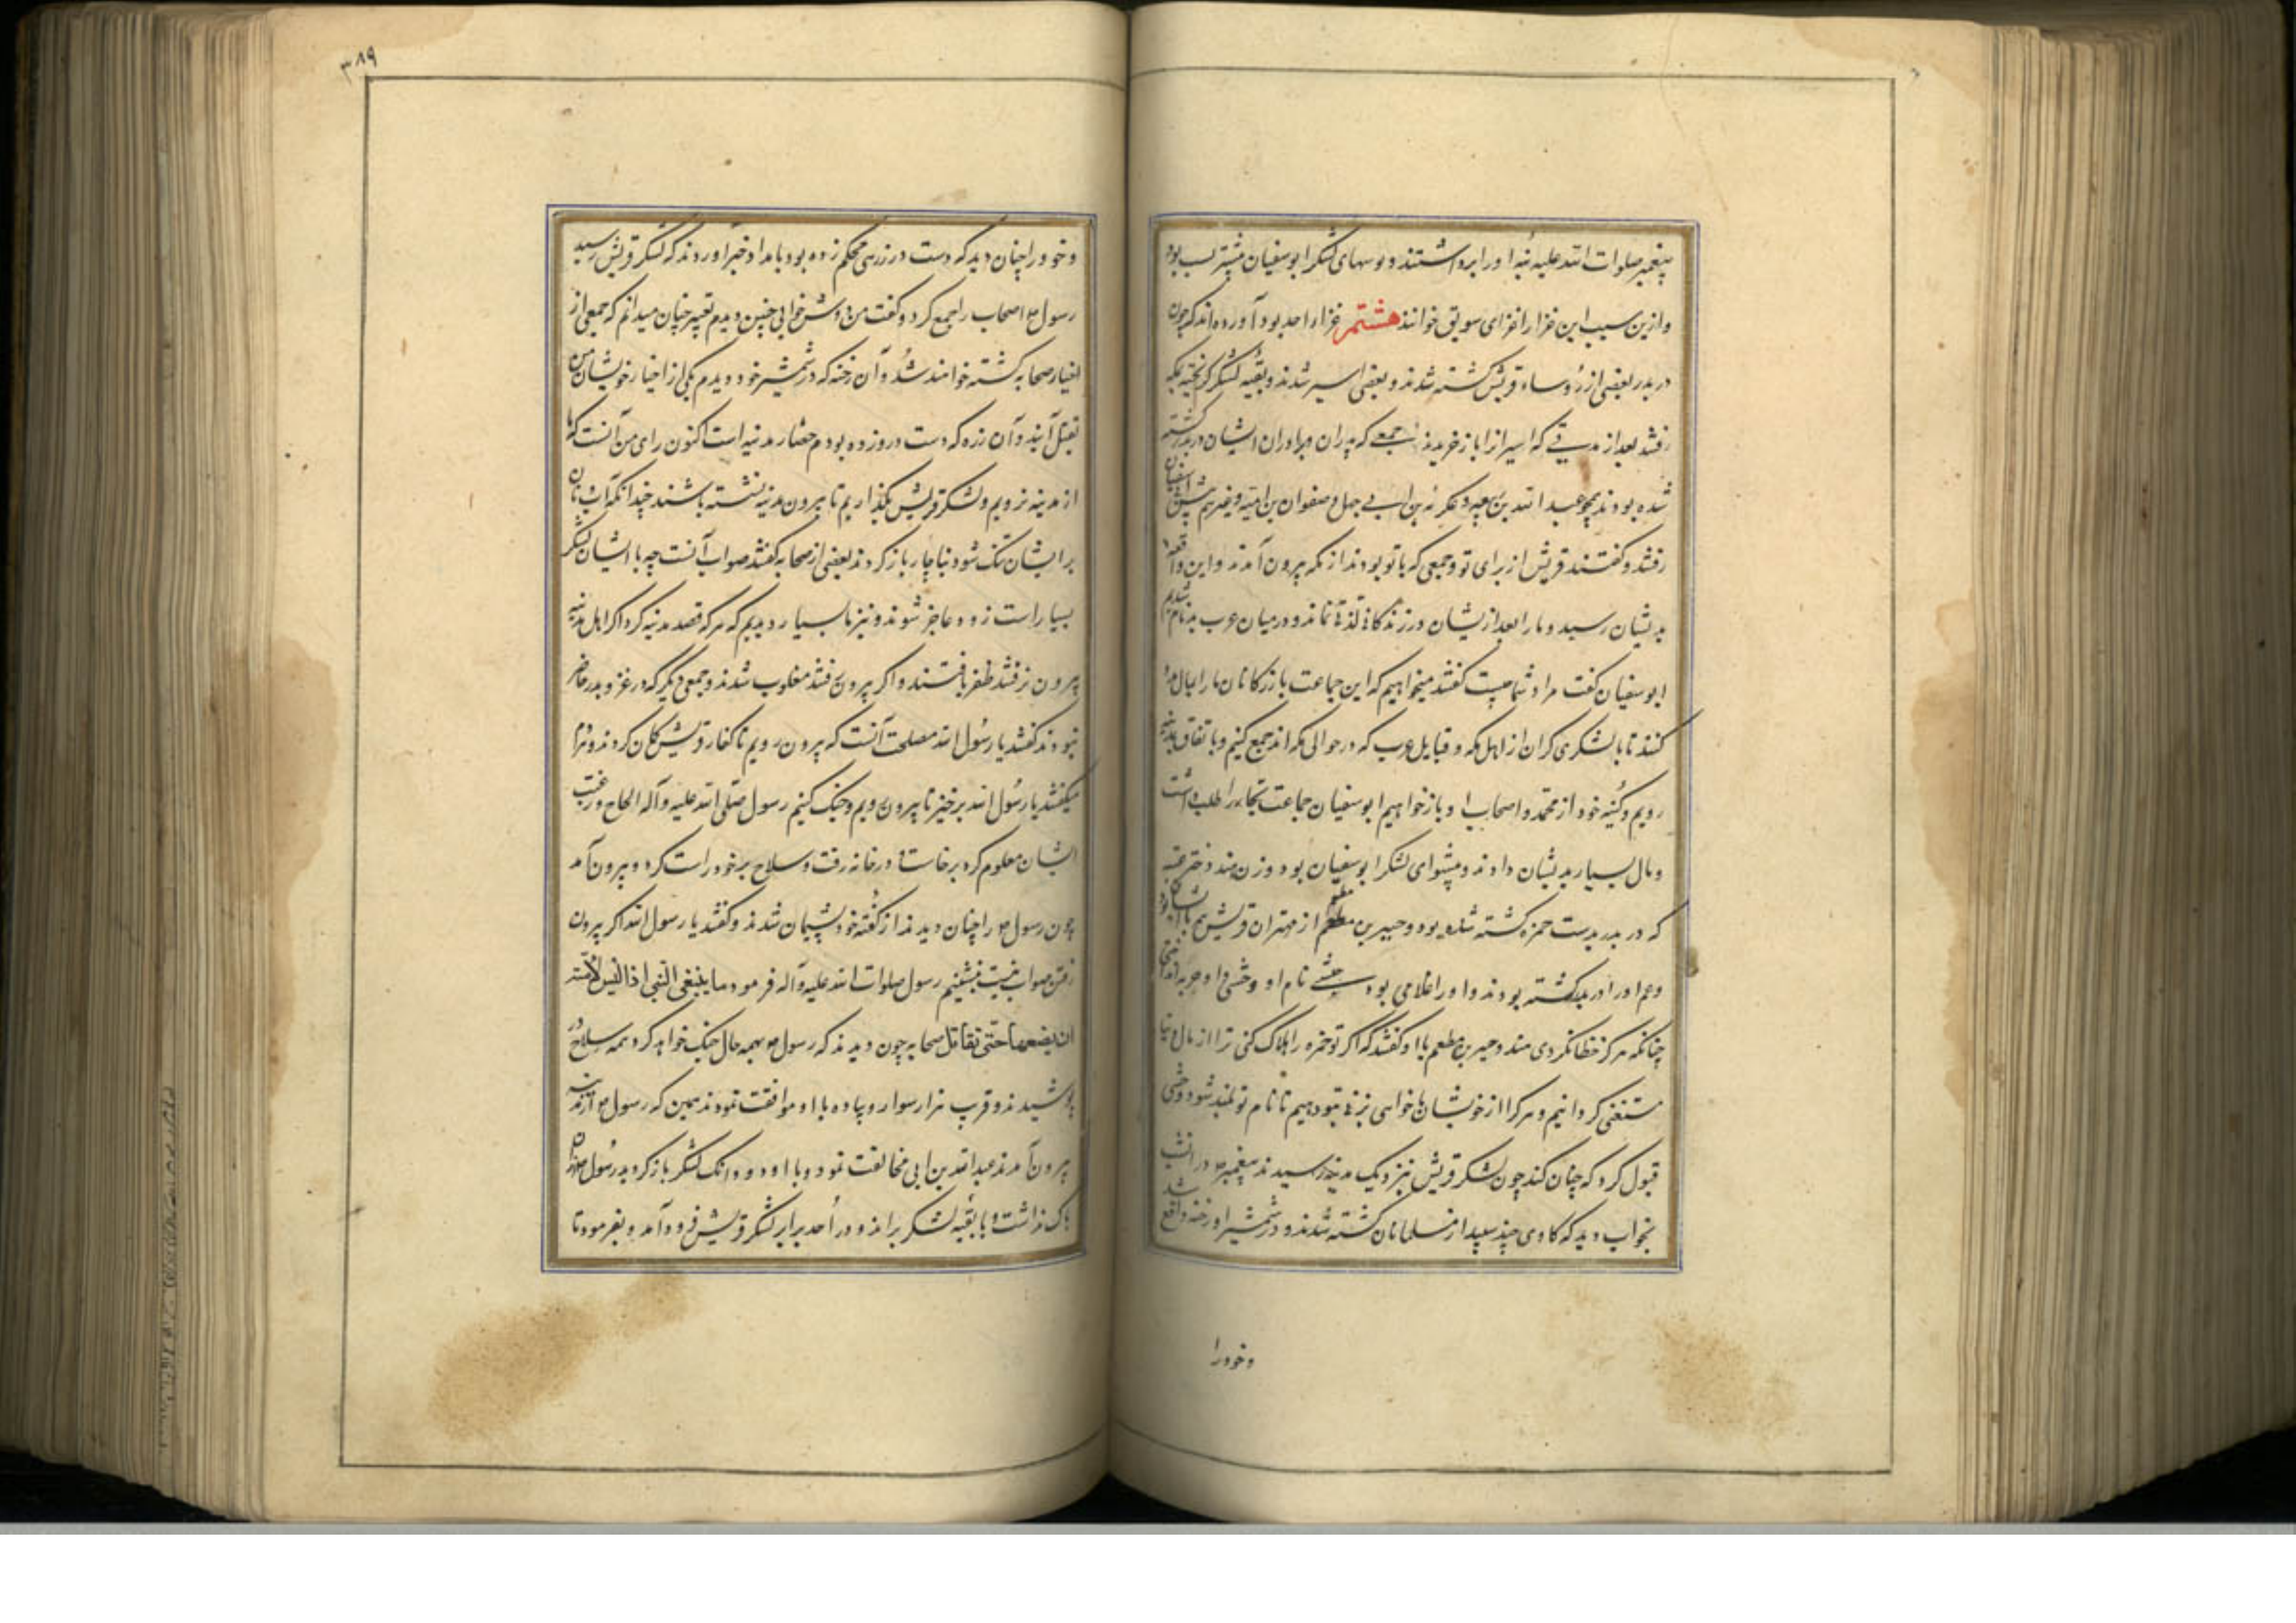 پیغمبر صلوات الله علیه بنه او را برداشتند و بنه‌های لشکر ابوسفیان بیشتر سبب بود
و ازین سبب این غزا را غزای سویق خوانند هشتم غزاء احد بود آورده‌اند که چون
در بدر بعضی از رؤساء قریش کشته شدند و بعضی اسیر شدند و بقیه لشکر گریخته بمکه
رفتند بعد از مدتی که اسیرانرا باز خریدند جمعی که پدران و برادران ایشان در بدر کشته
شده بودند همچو عبدالله بن ربیعه و عکرمه بن ابی جهل و صفوان بن امیه و غیرهم پیش ابوسفیان
رفتند و گفتند قریش از برای تو و جمعی که با تو بودند از مکه بیرون آمدند و این واقعه
بدیشان رسید و ما را بعد ازیشان در زندگانی لذتی نماند و در میان عرب بدنام شدیم
ابوسفیان گفت مراد شما چیست گفتند میخواهیم که این جماعت بازرگانان ما را بمال مدد
کنند تا با لشکری گران از اهل مکه و قبایل عرب که در حوالی مکه‌اند جمع کنیم و باتفاق بمدینه
رویم و کینه خود از محمد و اصحاب او باز خواهیم ابوسفیان جماعت تجار را طلب داشت
و مال بسیار بدیشان دادند و پیشوای لشکر ابوسفیان بود و زن هند دختر عتبه
که در بدر بدست حمزه کشته شده بود و جبیر بن مطعم از مهتران قریش هم با ایشان بود
و عم او را در بدر کشته بودند و او را غلامی بود حبشی نام او وحشی و او حربه انداختی
چنانکه هرگز خطا نکردی هند و جبیر بن مطعم با او گفتند که اگر تو حمزه را هلاک کنی ترا از مال دنیا
مستغنی گردانیم و هر کرا از خویشان ما خواهی بزنی بتو دهیم تا نام تو بلند شود وحشی
قبول کرد که چنان کند چون لشکر قریش نزدیک مدینه رسیدند پیغمبر ص در آنشب
بخواب دید که گاوی چند سپید از مسلمانان کشته شدند و در شمشیر او رخنه واقع شد
و خود را
۳۸۹
و خود را چنان دید که دست در زرهی محکم زده بود بامداد خبر آوردند که لشکر قریش رسید
رسول ص اصحاب را جمع کرد و گفت من دوش خوابی چنین دیدم تعبیر چنان میدانم که جمعی از
اخیار صحابه کشته خواهند شد و آن رخنه که در شمشیر خود دیدم یکی از اخیار خویشان من
بقتل آیند و آن زره که دست در و زده بودم حصار مدینه است اکنون رای من آنست که ما
از مدینه نرویم و لشکر قریش بگذاریم تا بیرون مدینه نشسته باشند چندانکه آب و نان
بر ایشان تنک شود بناچار باز کردند بعضی از صحابه گفتند صواب آنست چه با ایشان لشکر
بسیار است زود عاجز شوند و نیز ما بسیار دیدیم که هر که قصد مدینه کرد اگر اهل مدینه
بیرون نرفتند ظفر یافتند و اگر بیرون رفتند مغلوب شدند و جمعی دیگر که در غزو بدر حاضر
نبودند گفتند یا رسول الله مصلحت آنست که بیرون رویم تا کفار قریش گمان
میگفتند یا رسول الله برخیز تا بیرون رویم و جنک کنیم رسول صلی الله علیه و آله الحاح و رغبت
ایشان معلوم کرد برخاست و در خانه رفت و سلاح بر خود راست کرد و بیرون آمد
چون رسول ص را چنان دیدند از گفته خود پشیمان شدند و گفتند یا رسول الله اگر بیرون
رفتن صواب نیست بنشینیم رسول صلوات الله علیه و آله فرمود ما ینبغی النبی اذا لبس لامته
ان یضعها حتی یقاتل صحابه چون دیدند که رسول ص بهمه حال جنک خواهد کرد همه سلاح در
پوشیدند و قرب هزار سوار و پیاده با او موافقت نمودند همین که رسول ص از مدینه
بیرون آمدند عبدالله بن ابی مخالفت نمود و با او دو دانک لشکر باز کردید رسول ص از آن
باک نداشت و با بقیه لشکر براند و در احد برابر لشکر قریش فرود آمد و بفرمود تا